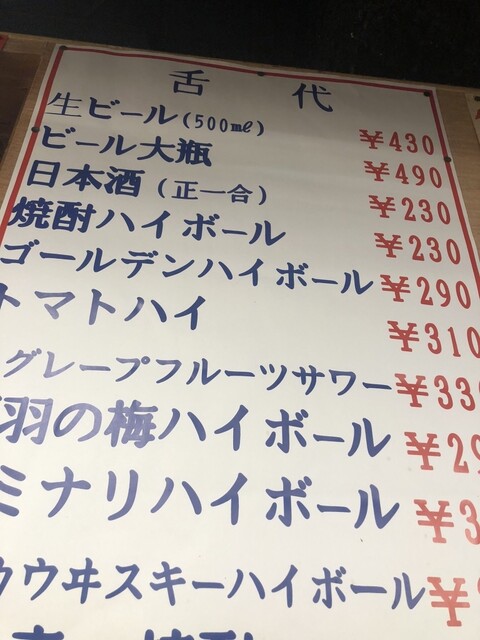 舌代
生ビール(500㎖) ¥430
ビール大瓶 ¥490
日本酒(正一合) ¥230
焼酎ハイボール ¥230
ゴールデンハイボール ¥290
トマトハイ ¥310
グレープフルーツサワー ¥33
羽の梅ハイボール ¥29
ミナリハイボール ¥3
ウヰスキーハイボール ¥